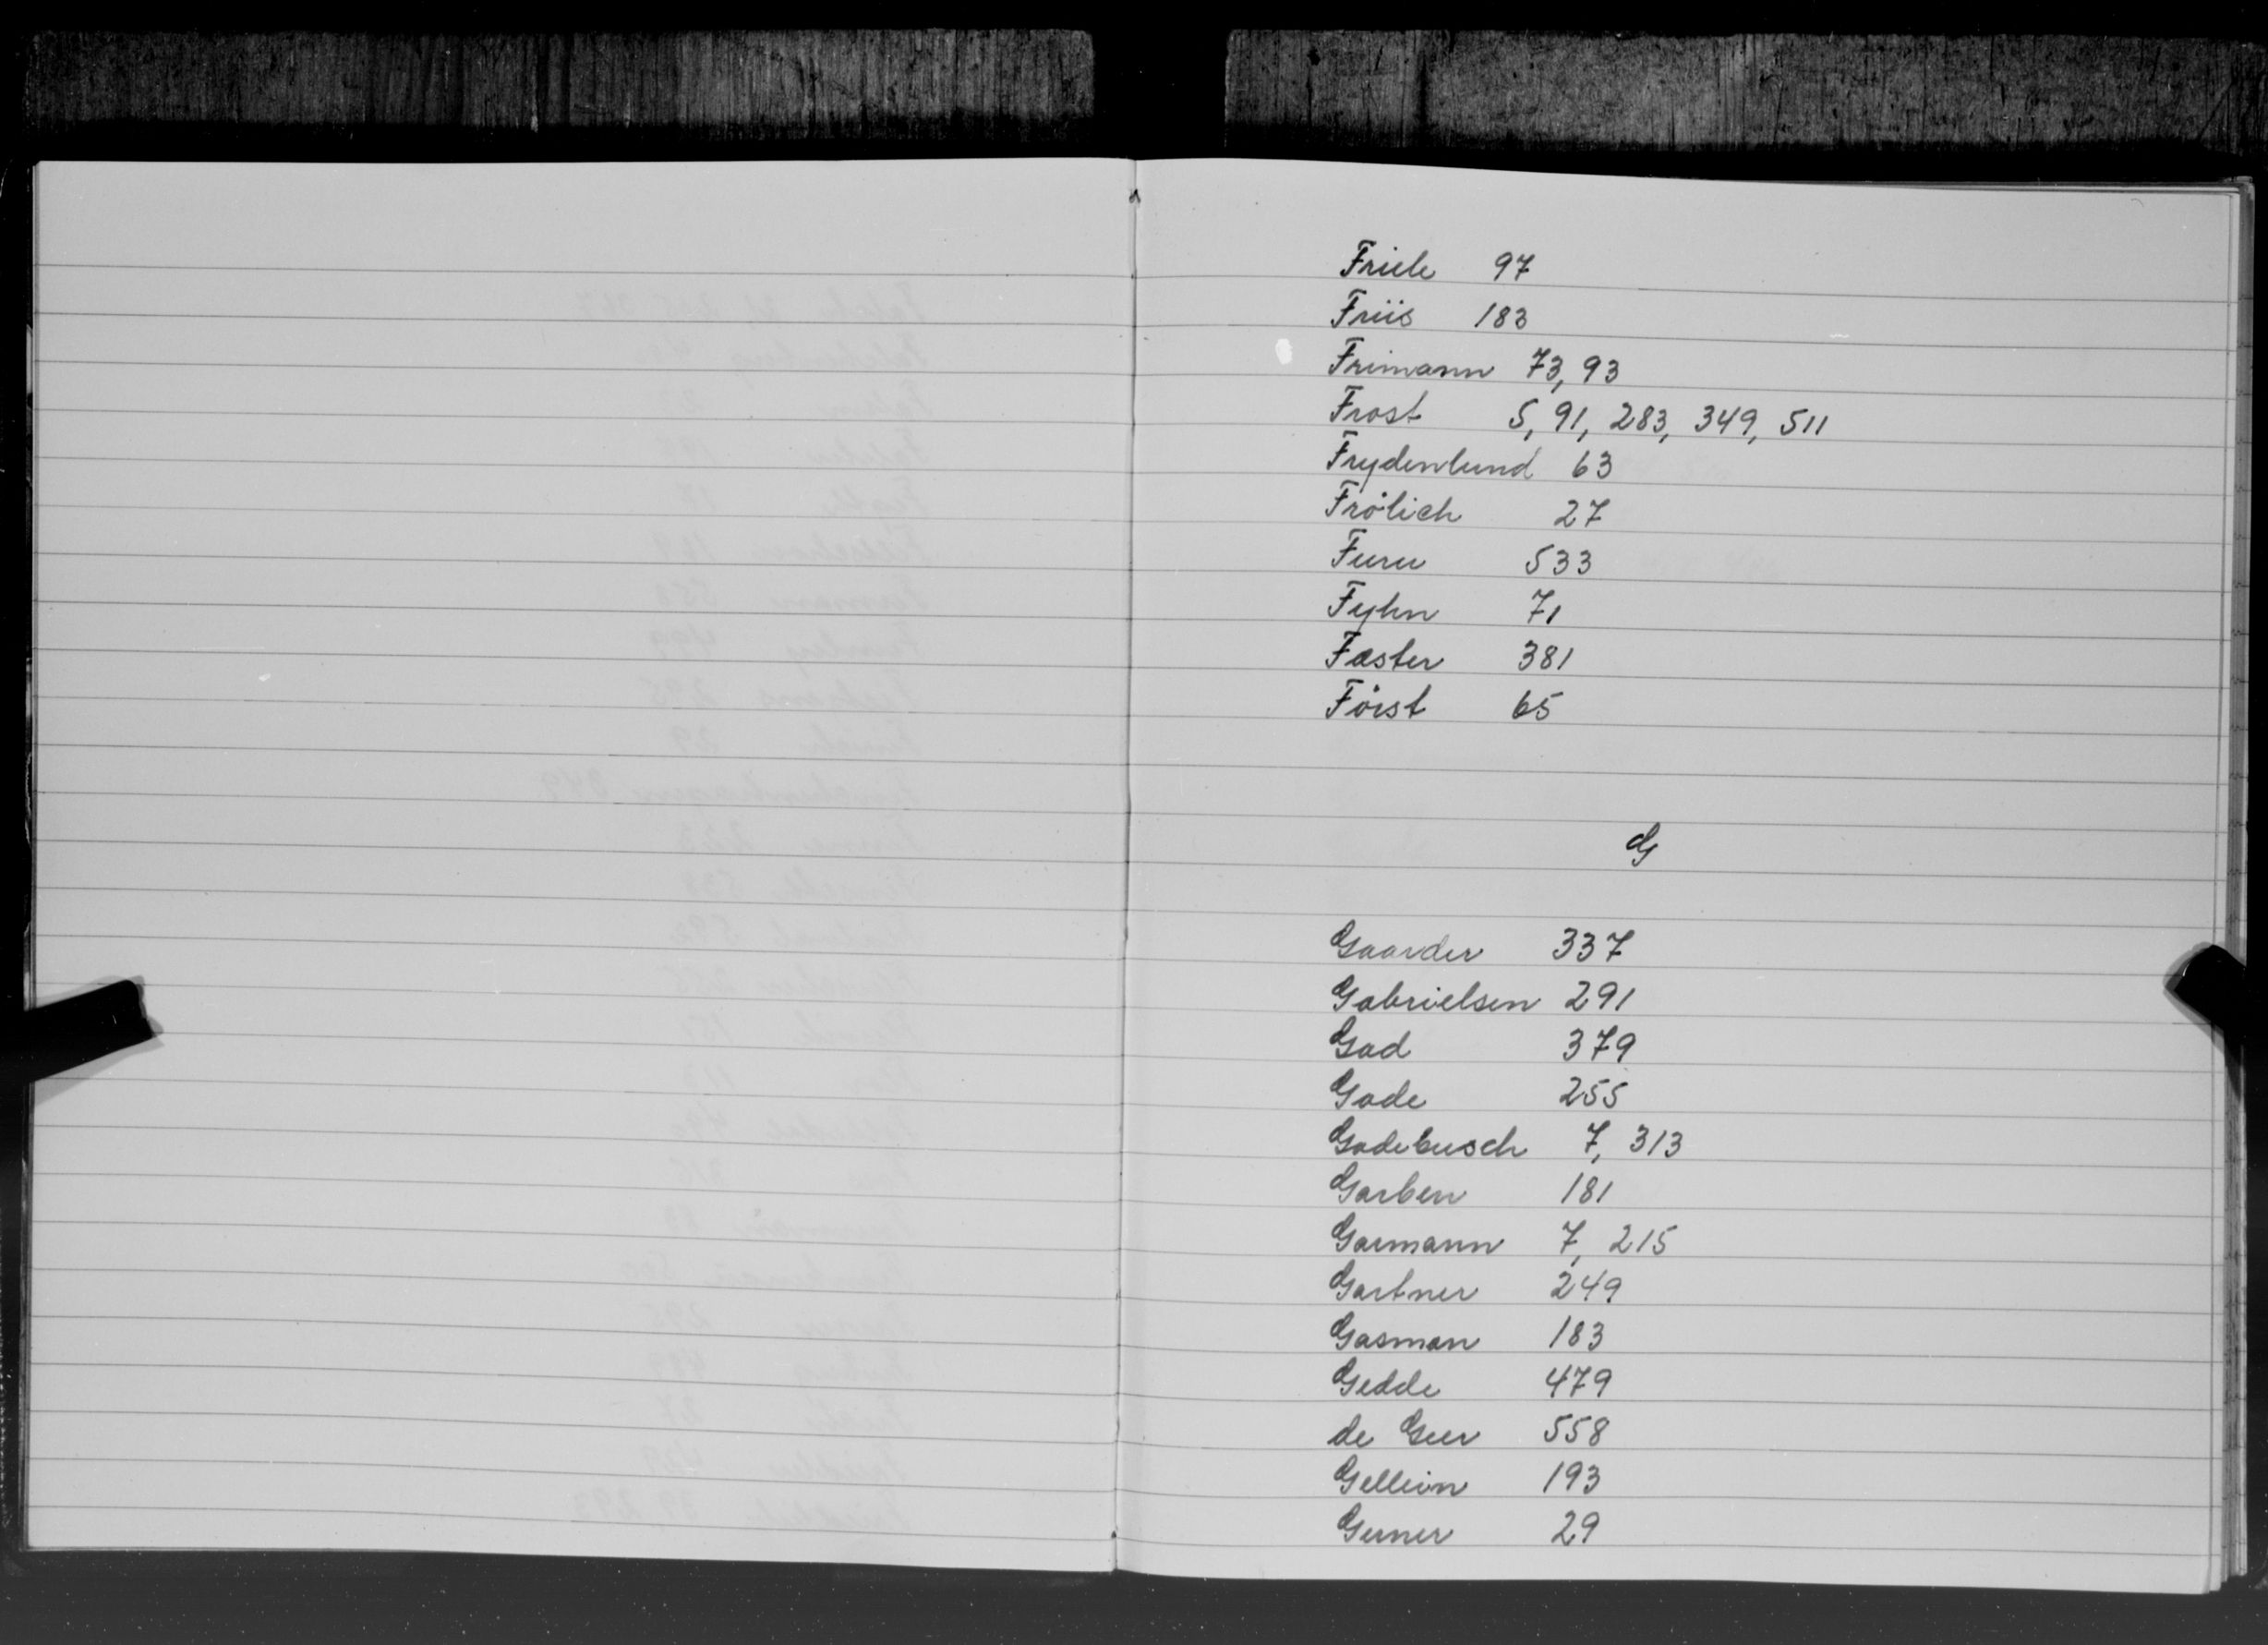 Friele 97
Friis 183
Frimann 73, 93
Frost 5, 91, 283, 349, 511
Frydenlund 63
Frölich 27
Furu 533
Fyhn 71
Fæster 381
Först 65
G
Gaarder 337
Gabrielsen 291
Gad 379
Gade 255
Gadebusch 7, 313
Garben 181
Garmann 7, 215
Gartner 249
Gasman 183
Gedde 479
de Geer 558
Gellein 193
Gerner 29